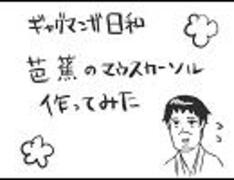 ギャグマンガ日和
芭蕉のマウスカーソル
作ってみた